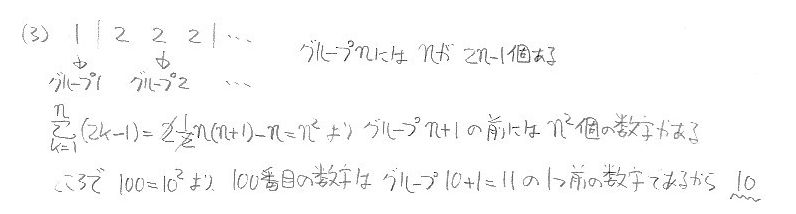 (3) 1 | 2 2 2 | … グループnには nが 2n-1個ある
グループ1 グループ2 …
\sum_{k=1}^{n}(2k-1)=2\frac{1}{2}n(n+1)-n=n² より グループn+1の前には n²個の数字がある
ころで 100=10²より 100番目の数字は グループ10+1=11の1つ前の数字であるから 10